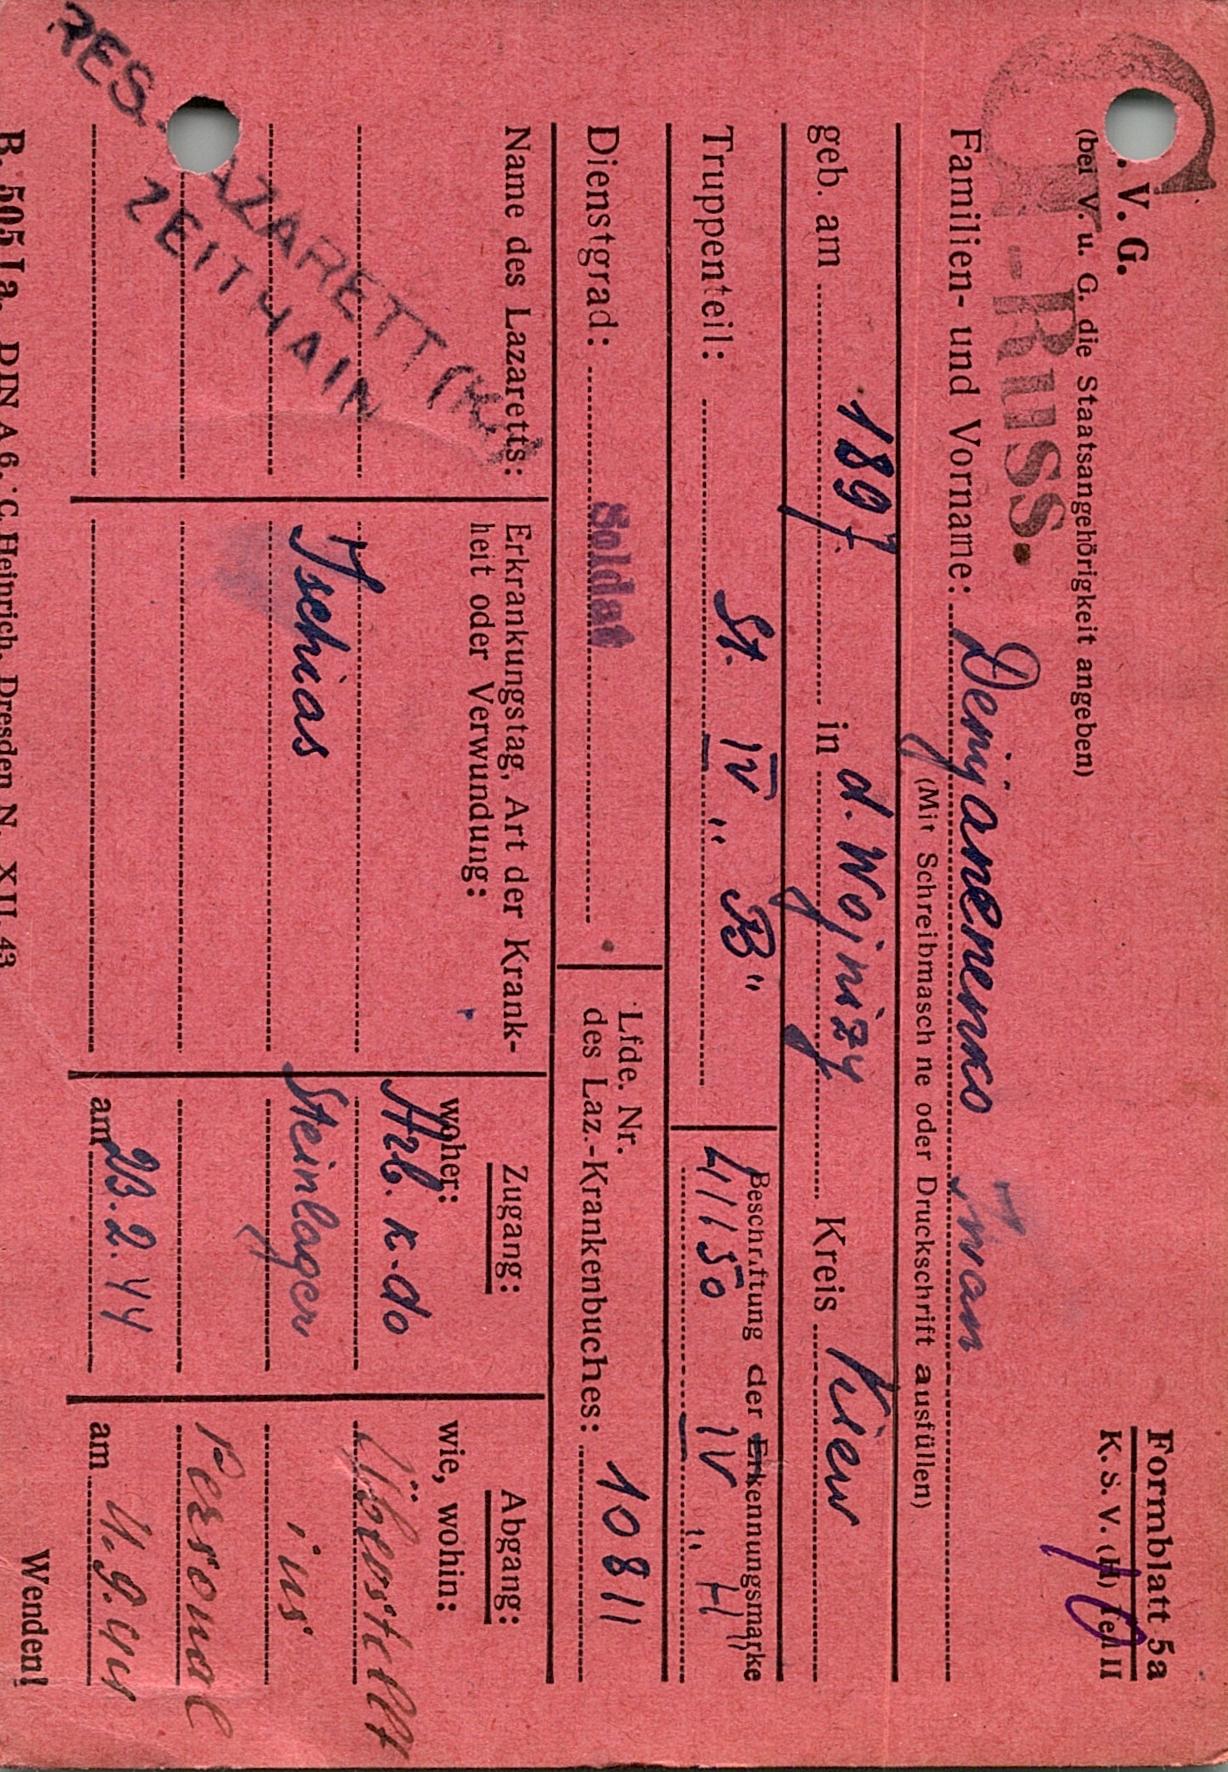 . V. G.
Formblatt 5a
(bei V. u. G. die Staatsangehörigkeit angeben)
K. S. V. (H) Teil II
G-Russ.
Familien- und Vorname: Demjanenko Iwan
(Mit Schreibmasch ne oder Druckschrift ausfüllen)
geb. am 1897 in d. Wojnizy Kreis Kiew
Truppenteil: St. IV „B“
Beschriftung der Erkennungsmarke
IV „H“
Dienstgrad: Soldat
Lfde. Nr.
des Laz.-Krankenbuches: 10811
Name des Lazaretts:
RES.-LAZARETT
ZEITHAIN
Erkrankungstag, Art der Krank-
heit oder Verwundung:
Ischias
Zugang:
woher:
Arb. K-do
Steinlager
am 23.2.44
Abgang:
wie, wohin:
Überstellt
ins
Personal
am
Wenden!
B. 505 Ia. DIN A 6. C. Heinrich, Dresden N. XII. 43